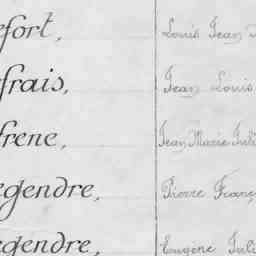 efort, Louis Jean
efrais, Jean Louis
efrene, Jean Marie Juli
egendre, Pierre Franç
egendre, Eugène Juli